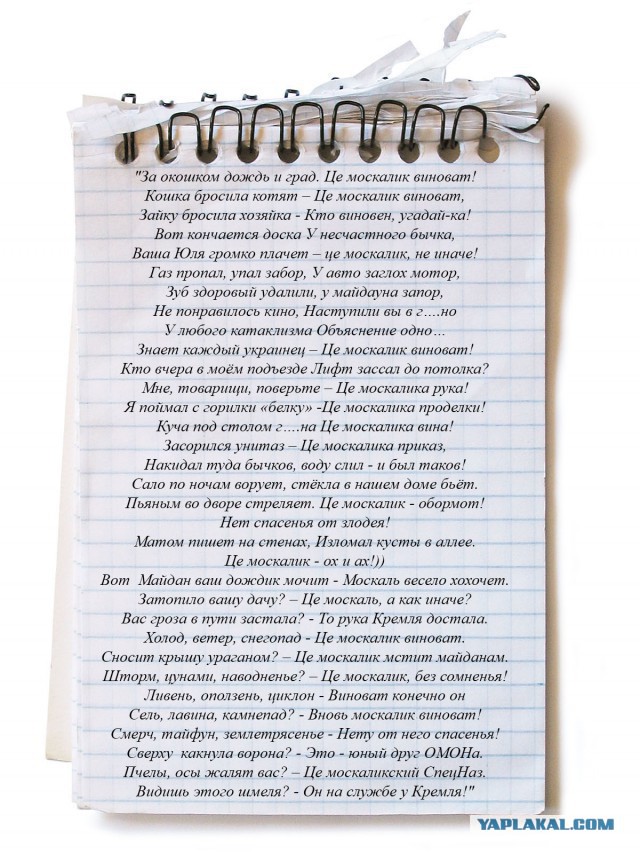 "За окошком дождь и град. Це москалик виноват!
Кошка бросила котят – Це москалик виноват,
Зайку бросила хозяйка - Кто виновен, угадай-ка!
Вот кончается доска У несчастного бычка,
Ваша Юля громко плачет – це москалик, не иначе!
Газ пропал, упал забор, У авто заглох мотор,
Зуб здоровый удалили, у майдауна запор,
Не понравилось кино, Наступили вы в г….но
У любого катаклизма Объяснение одно…
Знает каждый украинец – Це москалик виноват!
Кто вчера в моём подъезде Лифт зассал до потолка?
Мне, товарищи, поверьте – Це москалика рука!
Я поймал с горилки «белку» -Це москалика проделки!
Куча под столом г….на Це москалика вина!
Засорился унитаз – Це москалика приказ,
Накидал туда бычков, воду слил - и был таков!
Сало по ночам ворует, стёкла в нашем доме бьёт.
Пьяным во дворе стреляет. Це москалик - обормот!
Нет спасенья от злодея!
Матом пишет на стенах, Изломал кусты в аллее.
Це москалик - ох и ах!))
Вот  Майдан ваш дождик мочит - Москаль весело хохочет.
Затопило вашу дачу? – Це москаль, а как иначе?
Вас гроза в пути застала? - То рука Кремля достала.
Холод, ветер, снегопад - Це москалик виноват.
Сносит крышу ураганом? – Це москалик мстит майданам.
Шторм, цунами, наводненье? – Це москалик, без сомненья!
Ливень, оползень, циклон - Виноват конечно он
Сель, лавина, камнепад? - Вновь москалик виноват!
Смерч, тайфун, землетрясенье - Нету от него спасенья!
Сверху  какнула ворона? - Это - юный друг ОМОНа.
Пчелы, осы жалят вас? – Це москаликский СпецНаз.
Видишь этого шмеля? - Он на службе у Кремля!"
YAPLAKAL.COM